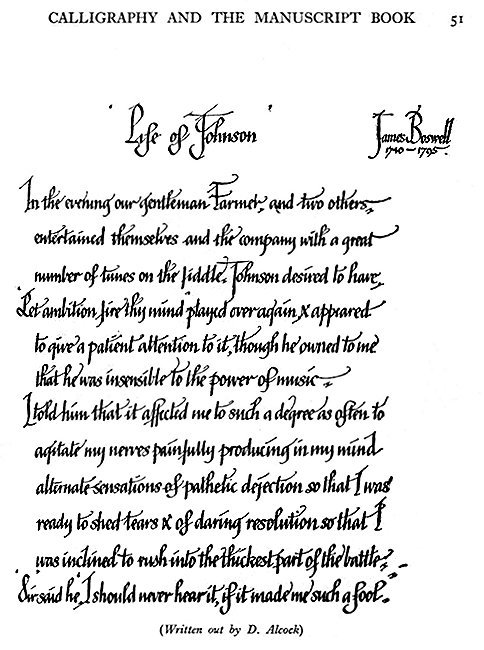 CALLIGRAPHY AND THE MANUSCRIPT BOOK 51
' Life of Johnson '
James Boswell
1740–1795.
In the evening our gentleman Farmer, and two others,
entertained themselves and the company with a great
number of tunes on the fiddle. Johnson desired to have,
"Let ambition fire thy mind" played over again, & appeared
to give a patient attention to it, though he owned to me
that he was insensible to the power of music—
I told him that it affected me to such a degree as often to
agitate my nerves painfully producing in my mind
alternate sensations of pathetic dejection so that I was
ready to shed tears & of daring resolution so that I
was inclined to rush into the thickest part of the battle.
"Sir" said he, "I should never hear it, if it made me such a fool."
(Written out by D. Alcock)